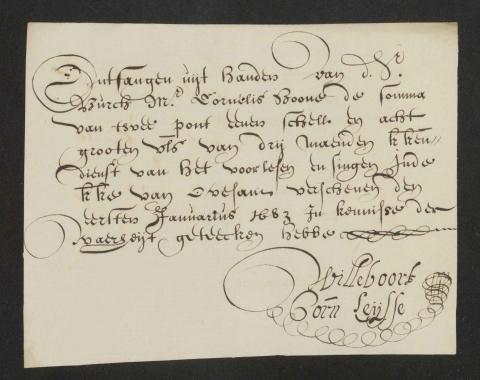 Ontfangen uijt handen van d. Sr
Burch Mr Cornelis Boone de somma
van twee pont seven schell en acht
grooten vls van drij maenden kken=
dienst van het voorlesen en singen Inde
kke van Ovesant verschenen den
eersten Januarius 1683 In kennisse der
waerheijt geteecken hebbe
Willeboort
Leijsse